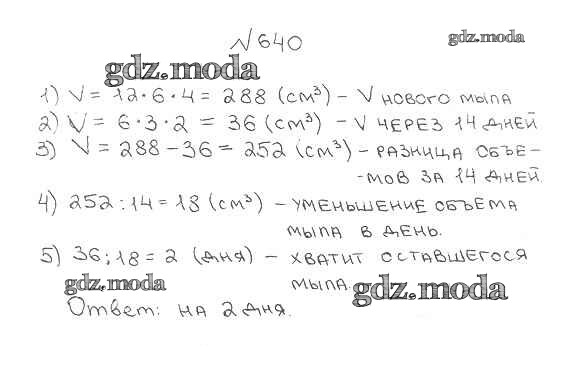 № 640
gdz.moda
gdz.moda
1) V = 12 · 6 · 4 = 288 (см³) – V нового мыла
2) V = 6 · 3 · 2 = 36 (см³) – V через 14 дней
3) V = 288 – 36 = 252 (см³) – разница объе-
-мов за 14 дней.
4) 252 : 14 = 18 (см³) – уменьшение объема
мыла в день.
5) 36 : 18 = 2 (дня) – хватит оставшегося
мыла.
gdz.moda
gdz.moda
Ответ: на 2 дня.